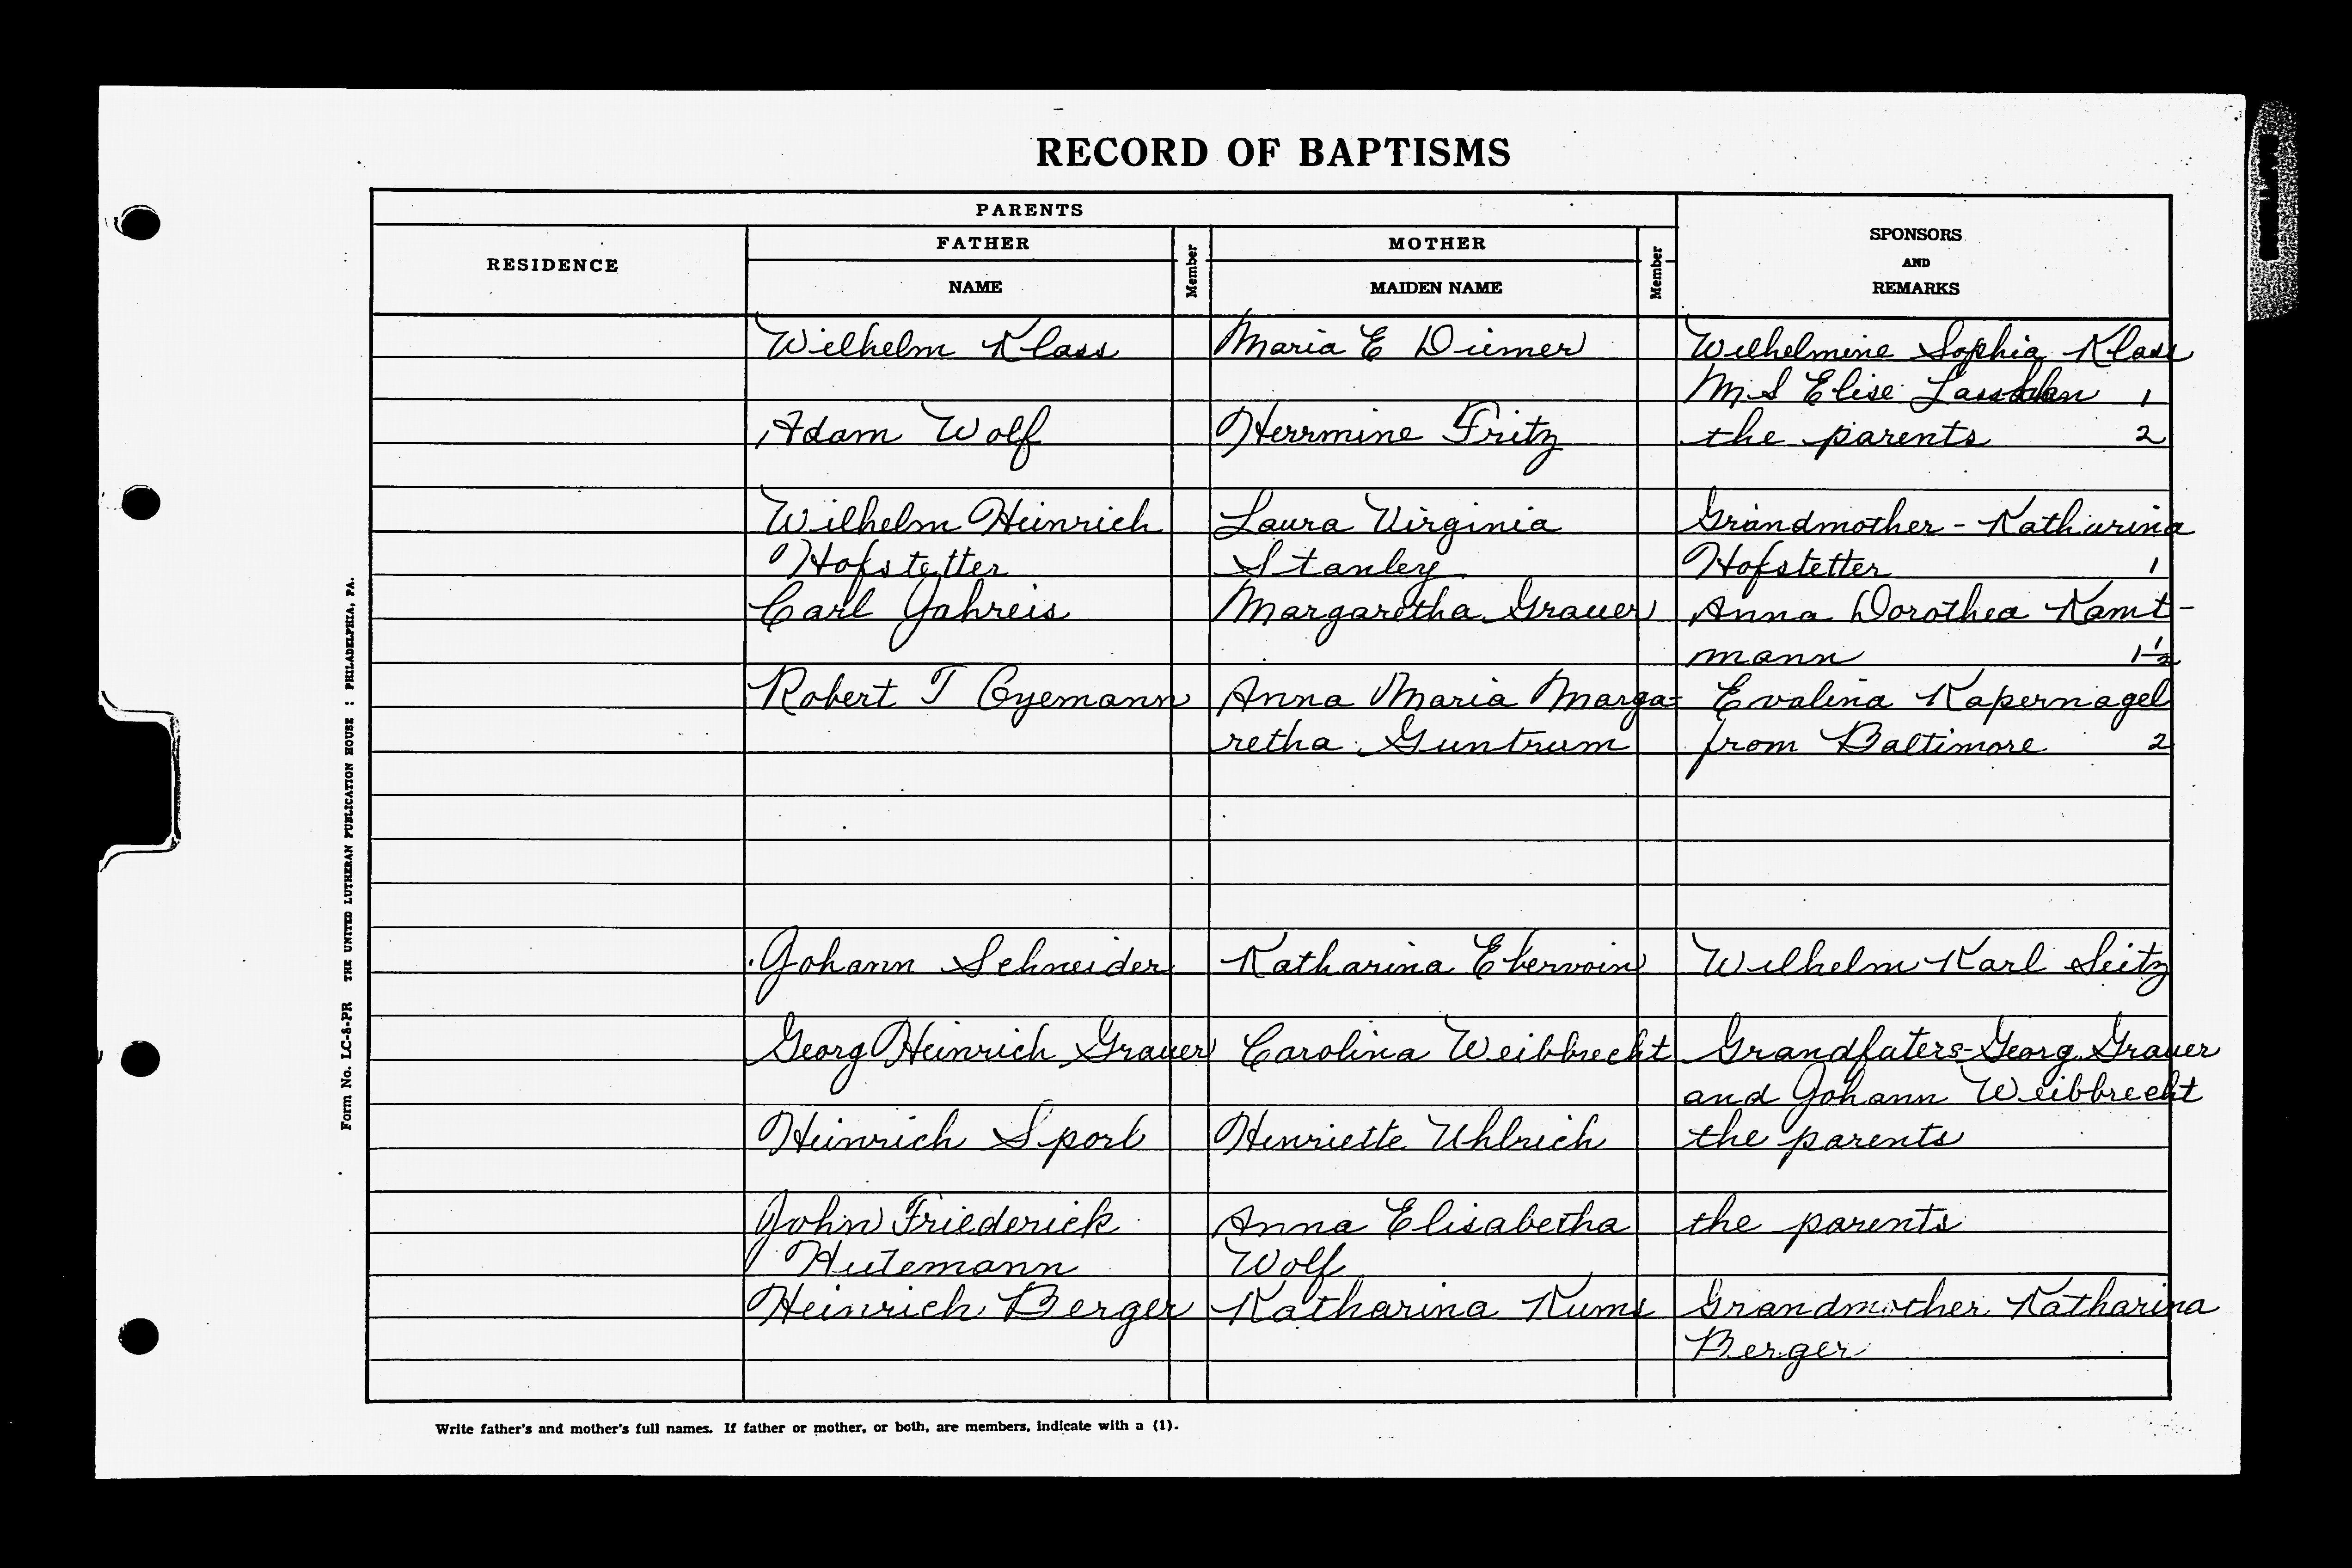 RECORD OF BAPTISMS
PARENTS
SPONSORS
AND
REMARKS
RESIDENCE
FATHER
NAME
Member
MOTHER
MAIDEN NAME
Member
Wilhelm Klass Maria E Diemer Wilhelmine Sophia Klass
M. S Elise 1
Adam Wolf Herrmine Fritz the parents 2
Wilhelm Heinrich Laura Virginia Grandmother - Katharina
Hofstetter Stanley Hofstetter 1
Carl Jahreis Margaretha Grauer Anna Dorothea Kamt-
mann 1½
Robert T Oyemann Anna Maria Marga- Evalina Kapernagel
retha Guntrum from Baltimore 2
Johann Schneider Katharina Wilhelm Karl Seitz
Georg Heinrich Grauer Carolina Weibbrecht Grandfaters - Georg Grauer
and Johann Weibbrecht
Heinrich Sporl Henriette Uhlrich the parents
John Friederick Anna Elisabetha the parents
Hutemann Wolf
Heinrich Berger Katharina Kums Grandmother Katharina
Berger
Write father's and mother's full names. If father or mother, or both, are members, indicate with a (1).
Form No. LC-8-PR THE UNITED LUTHERAN PUBLICATION HOUSE : PHILADELPHIA, PA.